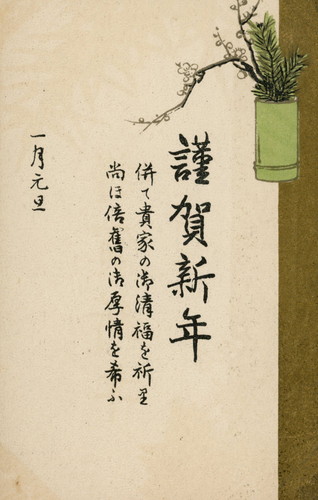 謹賀新年
併て貴家の御清福を祈里
尚ほ倍舊の御厚情を希ふ
一月元旦